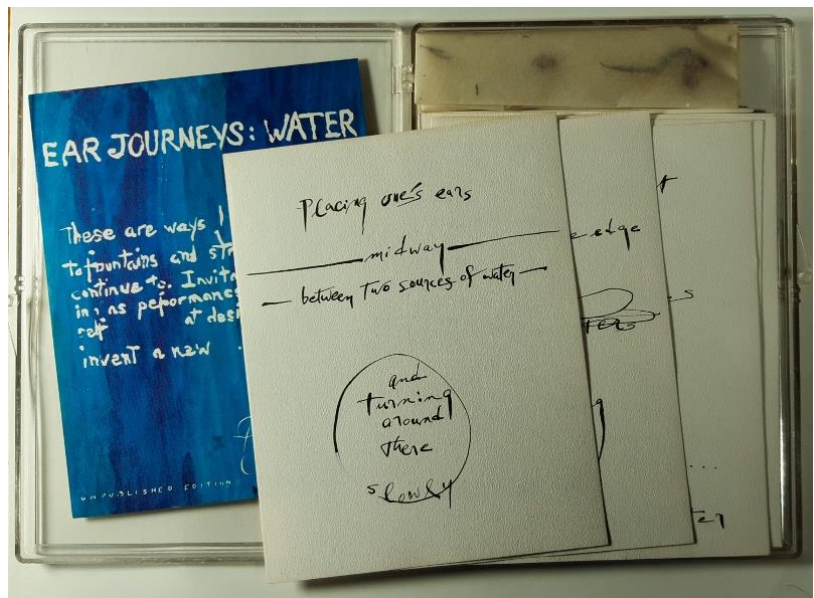 EAR JOURNEYS: WATER
These are ways I
to fountains and
continue to. Invita
in; as peformances
self at desi
invent a new
UNPUBLISHED EDITION
Placing one's ears
midway
between two sources of water
and
turning
around
there
slowly
edge
ters
s
...
ter